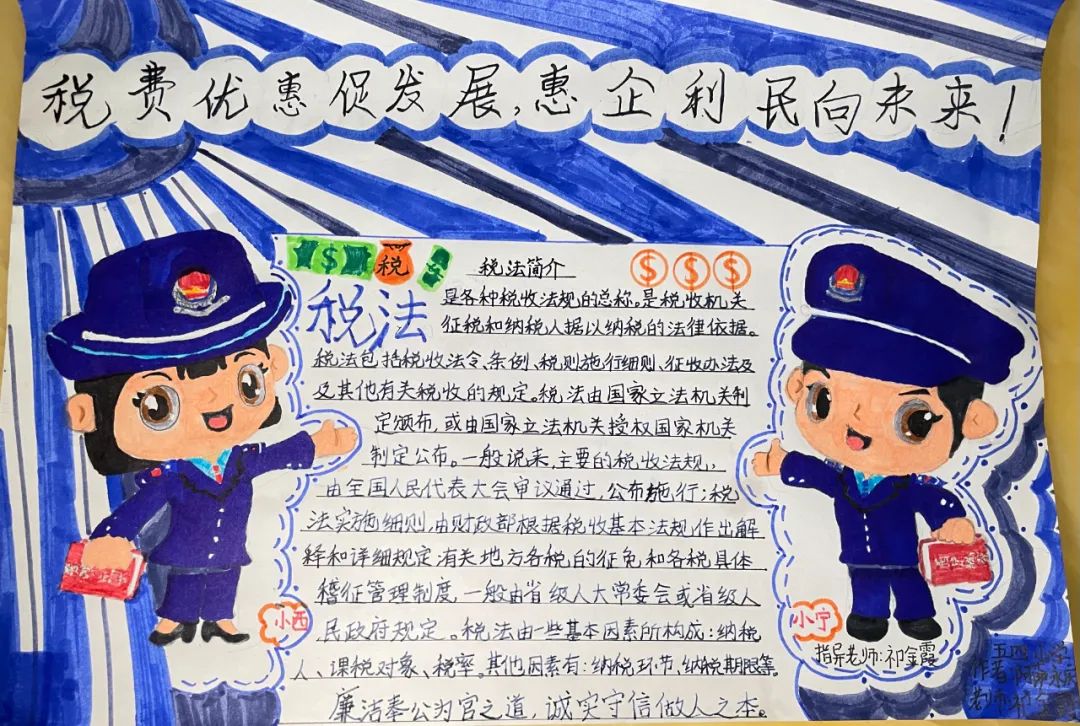 税费优惠促发展,惠企利民向未来!
$
税
$
税法简介
$ $ $
税法
是各种税收法规的总称。是税收机关
征税和纳税人据以纳税的法律依据。
税法包括税收法令、条例、税则施行细则、征收办法及
及其他有关税收的规定。税法由国家立法机关制
定颁布,或由国家立法机关授权国家机关
制定公布。一般说来,主要的税收法规,
由全国人民代表大会审议通过,公布施行;税
法实施细则,由财政部根据税收基本法规作出解
释和详细规定;有关地方各税的征免和各税具体
稽征管理制度,一般由省级人大常委会或省级人
民政府规定。税法由一些基本因素所构成:纳税
人、课税对象、税率。其他因素有:纳税环节、纳税期限等。
廉洁奉公为官之道,诚实守信做人之本。
小西
小宁
指导老师:祁金霞
五四小学
作者:
老师:祁